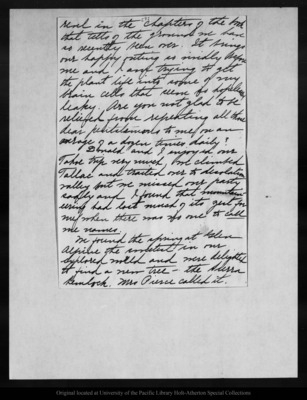 revel in the chapters of the book
that tells of the grounds we have
so recently been over. It brings
our happy outing so vividly before
me and I am trying to get
the plant life into some of my
brain cells that seem so hopelessly
leaky. Are you not glad to be
relieved from repeating all those
dear pentstemons to me on an
average of a dozen times daily?
Donald and I enjoyed our
Tahoe trip very much. We climbed
Tallac and trailed over to desolation
valley but we missed our party
sadly and I found that mountain
eering had lost much of its zest for
me when there was no one to call
me names.
We found the spring at Glen
Alpine the sweetest in our
explored world and were delighted
to find a new tree - the Sierra
hemlock. Mrs Pierce called it.
Original located at University of the Pacific Library Holt-Atherton Special Collections